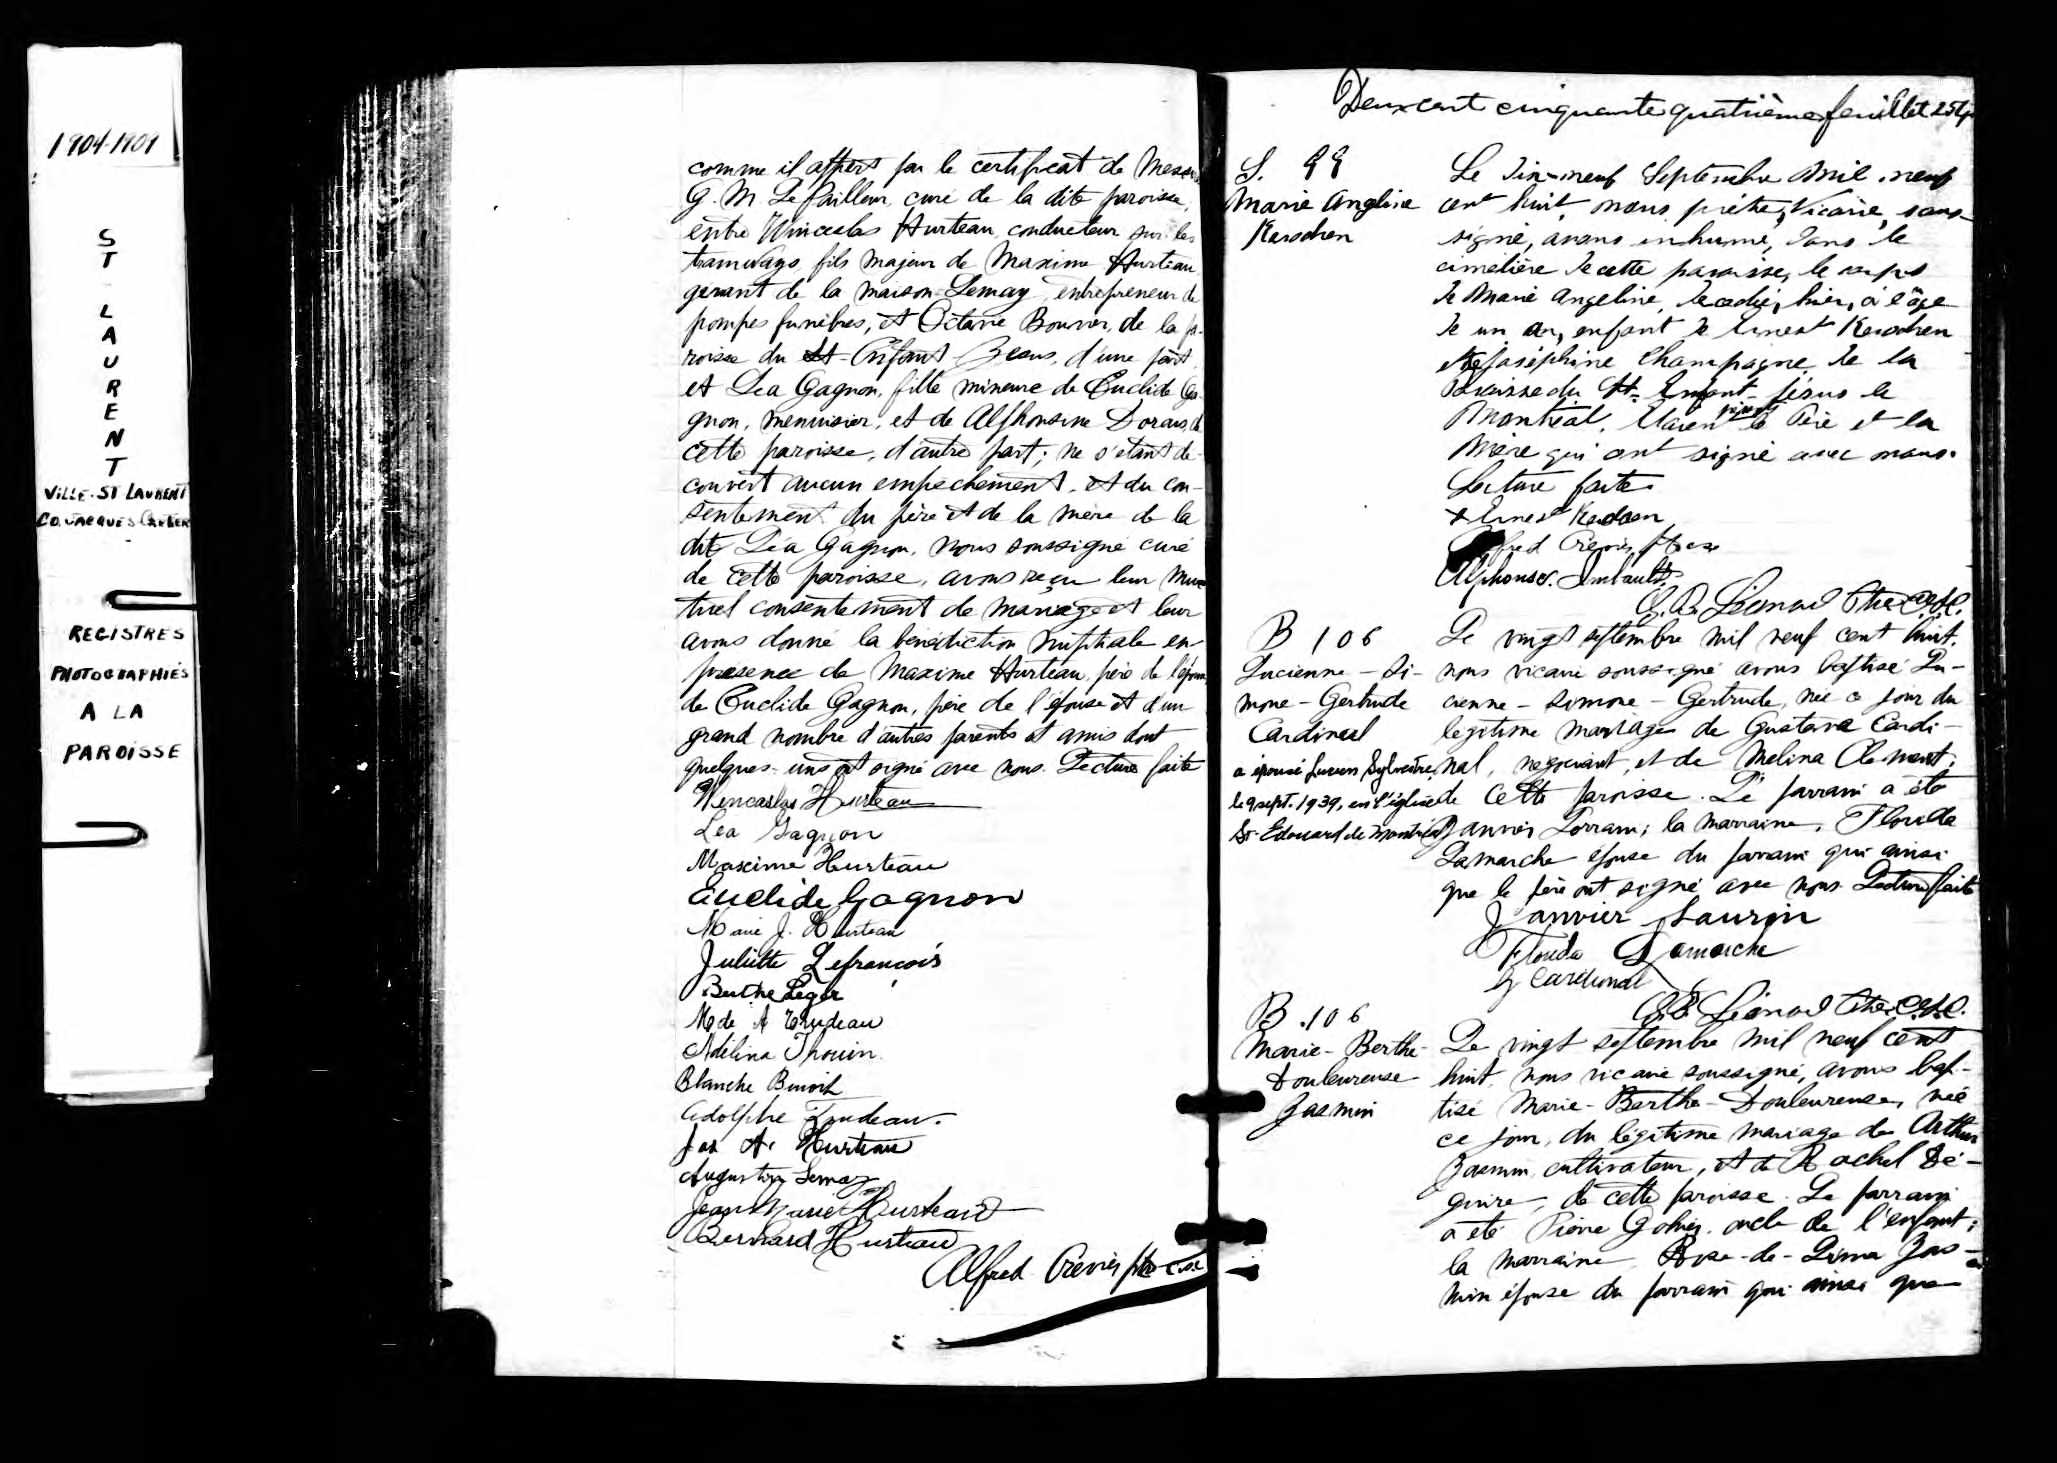 1904-1909
ST LAURENT
VILLE-ST LAURENT
CO. JACQUES CARTIER
REGISTRES
PHOTOGRAPHIÉS
A LA
PAROISSE
comme il appert par le certificat de Messire
G. M. LePailleur, curé de la dite paroisse,
entre Winceslas Hurteau, conducteur sur les
tramways, fils majeur de Maxime Hurteau
gérant de la maison Lemay, entrepreneur de
pompes funèbres, et Octavie Bourrier, de la pa-
roisse du St-Enfant-Jesus, d'une part,
et Léa Gagnon, fille mineure de Euclide Ga-
gnon, menuisier, et de Alphonsine Dorais, de
cette paroisse, d'autre part; ne s'étant dé-
couvert aucun empêchement, et du con-
sentement du père et de la mère de la
dite Léa Gagnon, nous soussigné curé
de cette paroisse, avons reçu leur mu-
tuel consentement de mariage et leur
avons donné la bénédiction nuptiale en
présence de Maxime Hurteau, père de l'époux,
de Euclide Gagnon, père de l'épouse et d'un
grand nombre d'autres parents et amis dont
quelques-uns ont signé avec nous. Lecture faite
Wencaslas Hurteau
Léa Gagnon
Maxime Hurteau
Euclide Gagnon
Marie J. Hurteau
Juliette Lefrancois
Berthe Leger
Mde A Trudeau
Adélina Thouin
Blanche Benoit
Adolphe Trudeau.
Jos A. Hurteau
Augustin Lemay
Jean Marie Hurteau
Bernard Hurteau
Alfred Crévier ptre c.s.c.
Deux cent cinquante quatrième feuillet 254
S. 99
Marie Angeline
Kerochen
Le dix-neuf Septembre mil neuf
cent huit, nous prêtre, Vicaire, sous-
signé, avons inhumé, dans le
cimetière de cette paroisse, le corps
de Marie Angeline, décédée, hier, à l'âge
de un an, enfant de Ernest Kerochen
et de Joséphine Champagne de la
paroisse du St-Enfant-Jésus de
Montréal. Etaient présents le Père et la
Mère qui ont signé avec nous.
Lecture faite.
+ Ernest
Alfred Crevier ptre
Alphonse Imbault
Léonard Ptre C.S.C.
B 106
Lucienne - Si-
mone - Gertrude
Cardinal
a épousé Lucien Sylvestre,
le 9 sept. 1939, en l'église
St-Edouard de Montréal
Le vingt septembre mil neuf cent huit,
nous vicaire soussigné avons baptisé Lu-
cienne - Simone - Gertrude, née ce jour du
légitime mariage de Gustave Cardi-
nal, négociant, et de Melina Clement,
de cette paroisse. Le parrain a été
Janvier Lorrain; la marraine, Florida
Lamarche épouse du parrain qui ainsi
que le père ont signé avec nous. Lecture faite
Janvier Laurin
Florida Lamarche
G Cardinal
Léonard Ptre C.S.C.
B. 106
Marie - Berthe
Douleureuse
Jasmin
Le vingt septembre mil neuf cent
huit, nous vicaire soussigné, avons bap-
tisé Marie - Berthe - Douleureuse, née
ce jour, du légitime mariage de Arthur
Jasmin, cultivateur, et de Rachel Dé-
guire, de cette paroisse. Le parrain
a été Pierre Gohier, oncle de l'enfant;
la marraine Rose-de-Lima Jas-
min épouse du parrain qui ainsi que